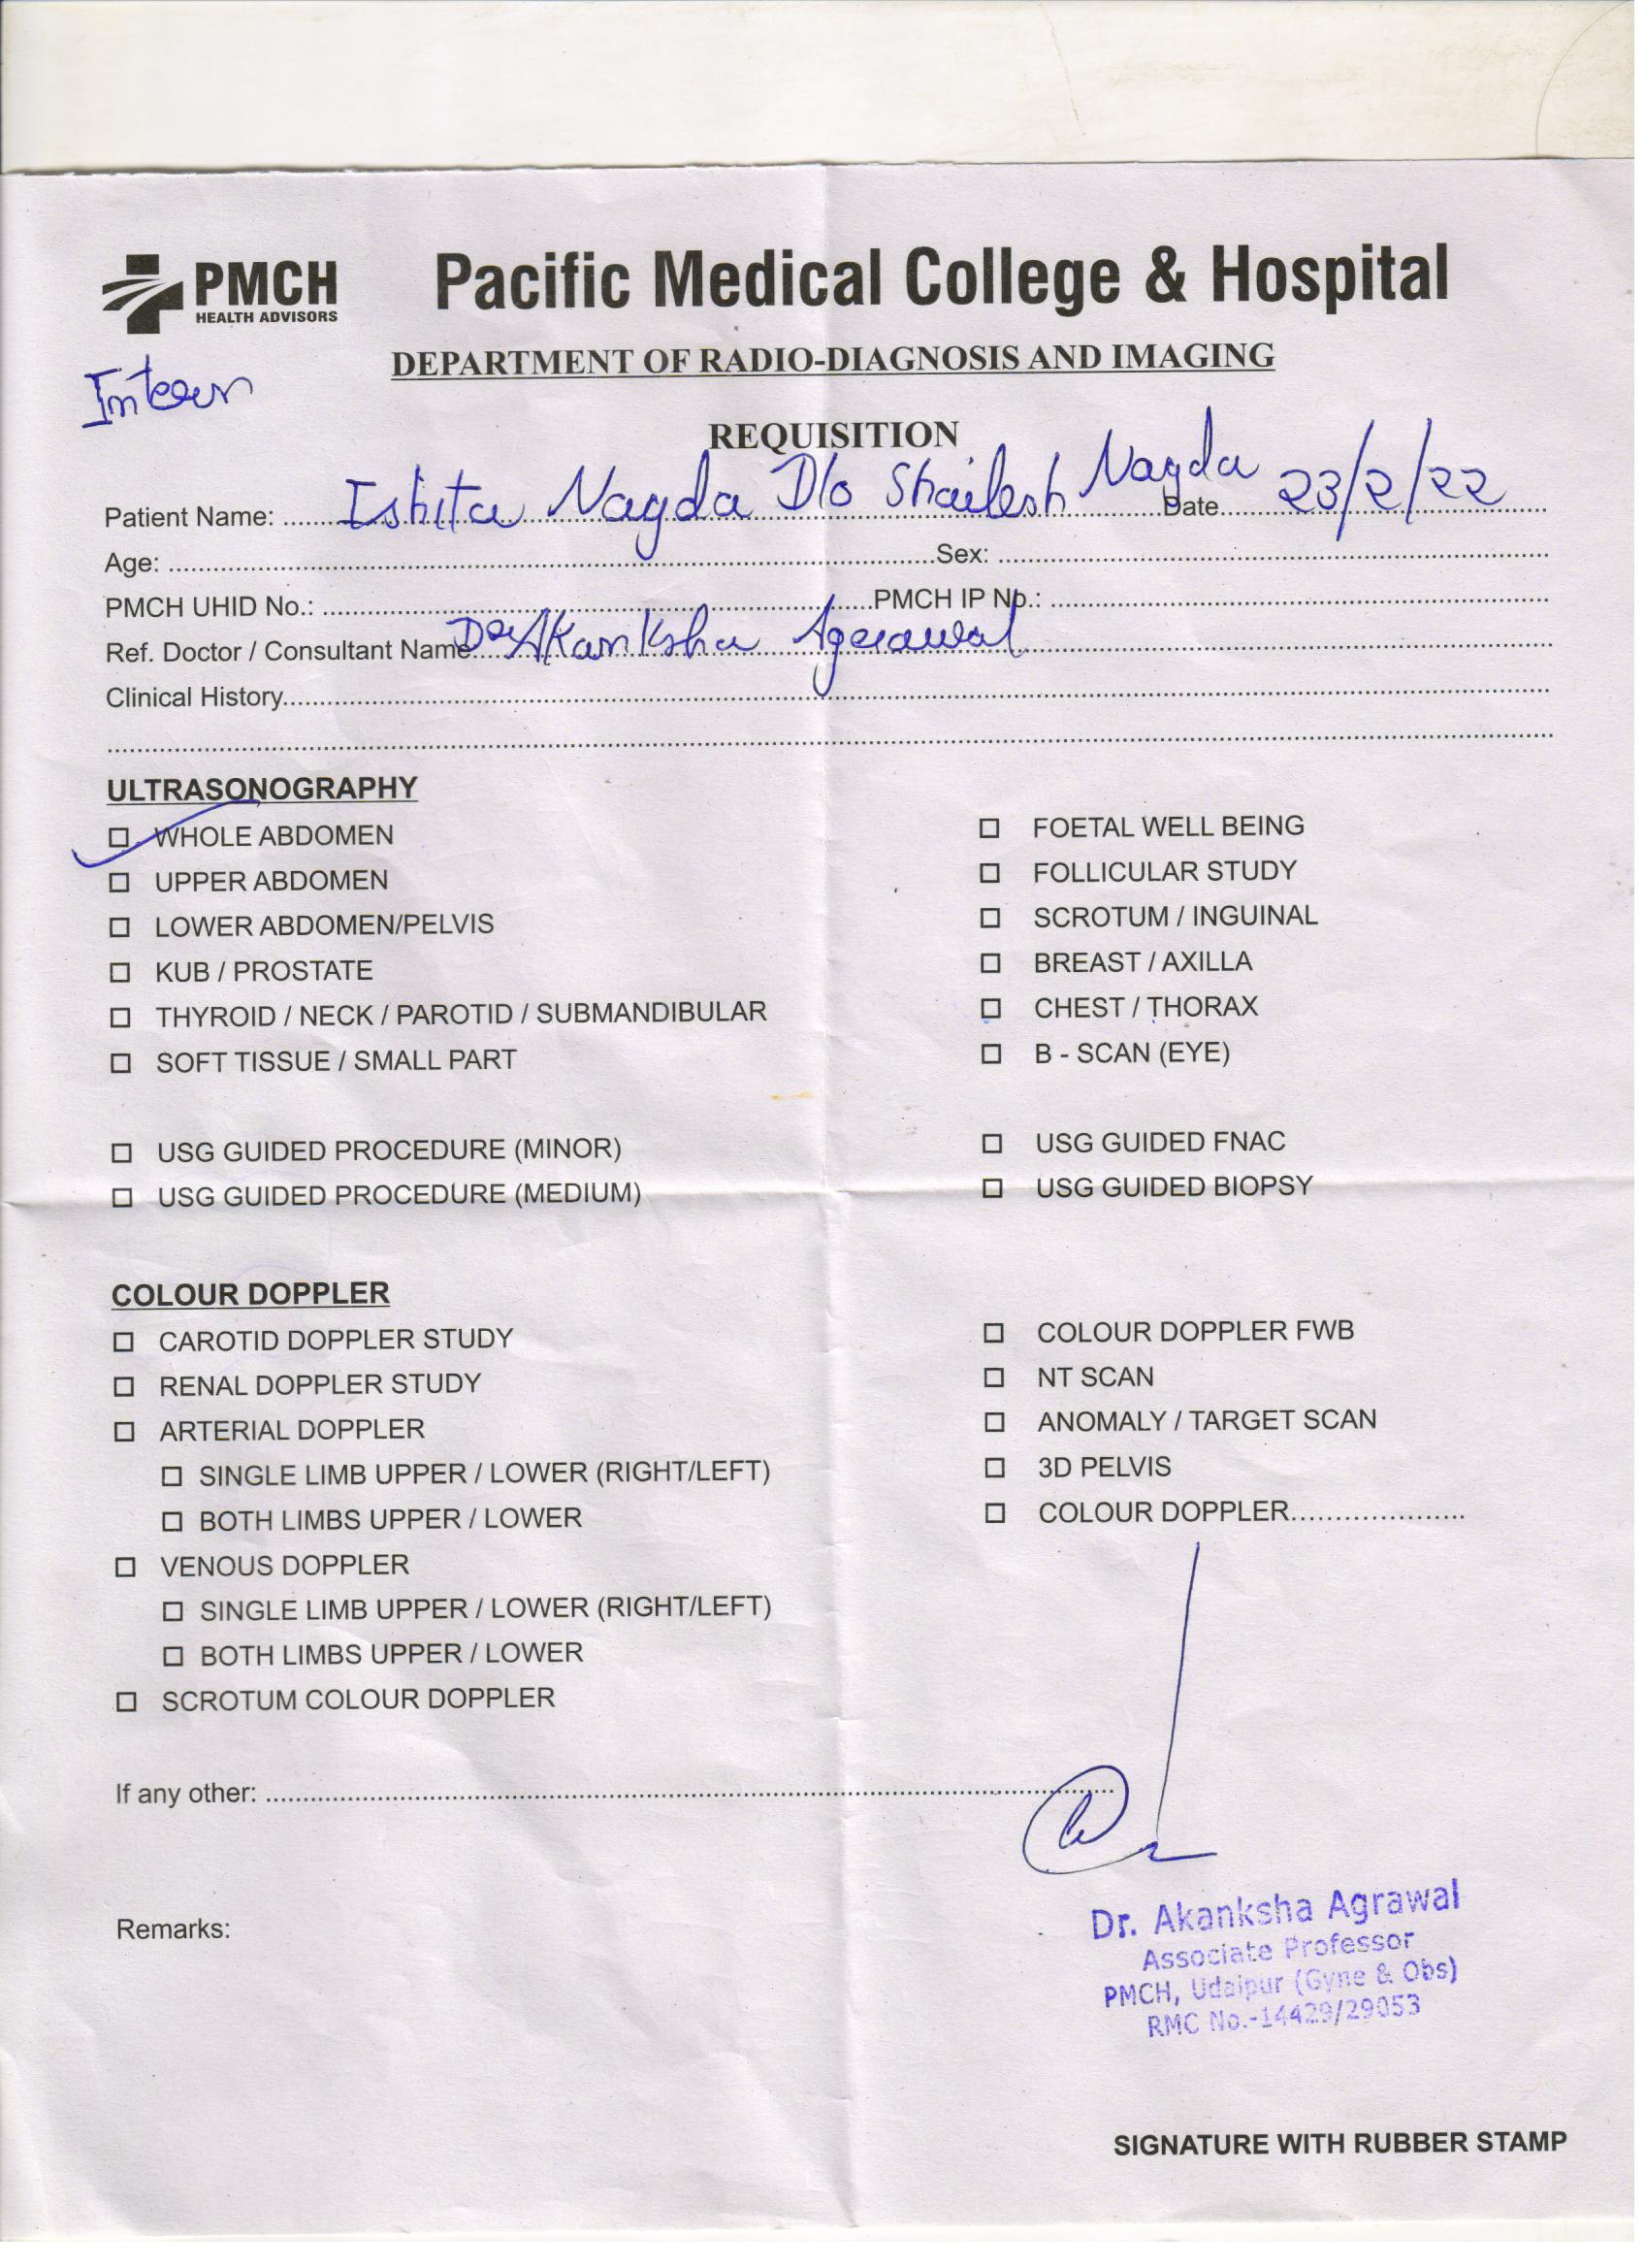 PMCH
HEALTH ADVISORS
Pacific Medical College & Hospital
DEPARTMENT OF RADIO-DIAGNOSIS AND IMAGING
Intern
REQUISITION
Patient Name: Ishita Nagda D/o Shailesh Nagda Date 23/2/22
Age: Sex:
PMCH UHID No.: PMCH IP No.:
Ref. Doctor / Consultant Name Dr Akanksha Agrawal
Clinical History
ULTRASONOGRAPHY
WHOLE ABDOMEN
UPPER ABDOMEN
LOWER ABDOMEN/PELVIS
KUB / PROSTATE
THYROID / NECK / PAROTID / SUBMANDIBULAR
SOFT TISSUE / SMALL PART
USG GUIDED PROCEDURE (MINOR)
USG GUIDED PROCEDURE (MEDIUM)
FOETAL WELL BEING
FOLLICULAR STUDY
SCROTUM / INGUINAL
BREAST / AXILLA
CHEST / THORAX
B - SCAN (EYE)
USG GUIDED FNAC
USG GUIDED BIOPSY
COLOUR DOPPLER
CAROTID DOPPLER STUDY
RENAL DOPPLER STUDY
ARTERIAL DOPPLER
SINGLE LIMB UPPER / LOWER (RIGHT/LEFT)
BOTH LIMBS UPPER / LOWER
VENOUS DOPPLER
SINGLE LIMB UPPER / LOWER (RIGHT/LEFT)
BOTH LIMBS UPPER / LOWER
SCROTUM COLOUR DOPPLER
COLOUR DOPPLER FWB
NT SCAN
ANOMALY / TARGET SCAN
3D PELVIS
COLOUR DOPPLER.....................
If any other:
Remarks:
Dr. Akanksha Agrawal
Associate Professor
PMCH, Udaipur (Gyne & Obs)
RMC No.-14429/29053
SIGNATURE WITH RUBBER STAMP